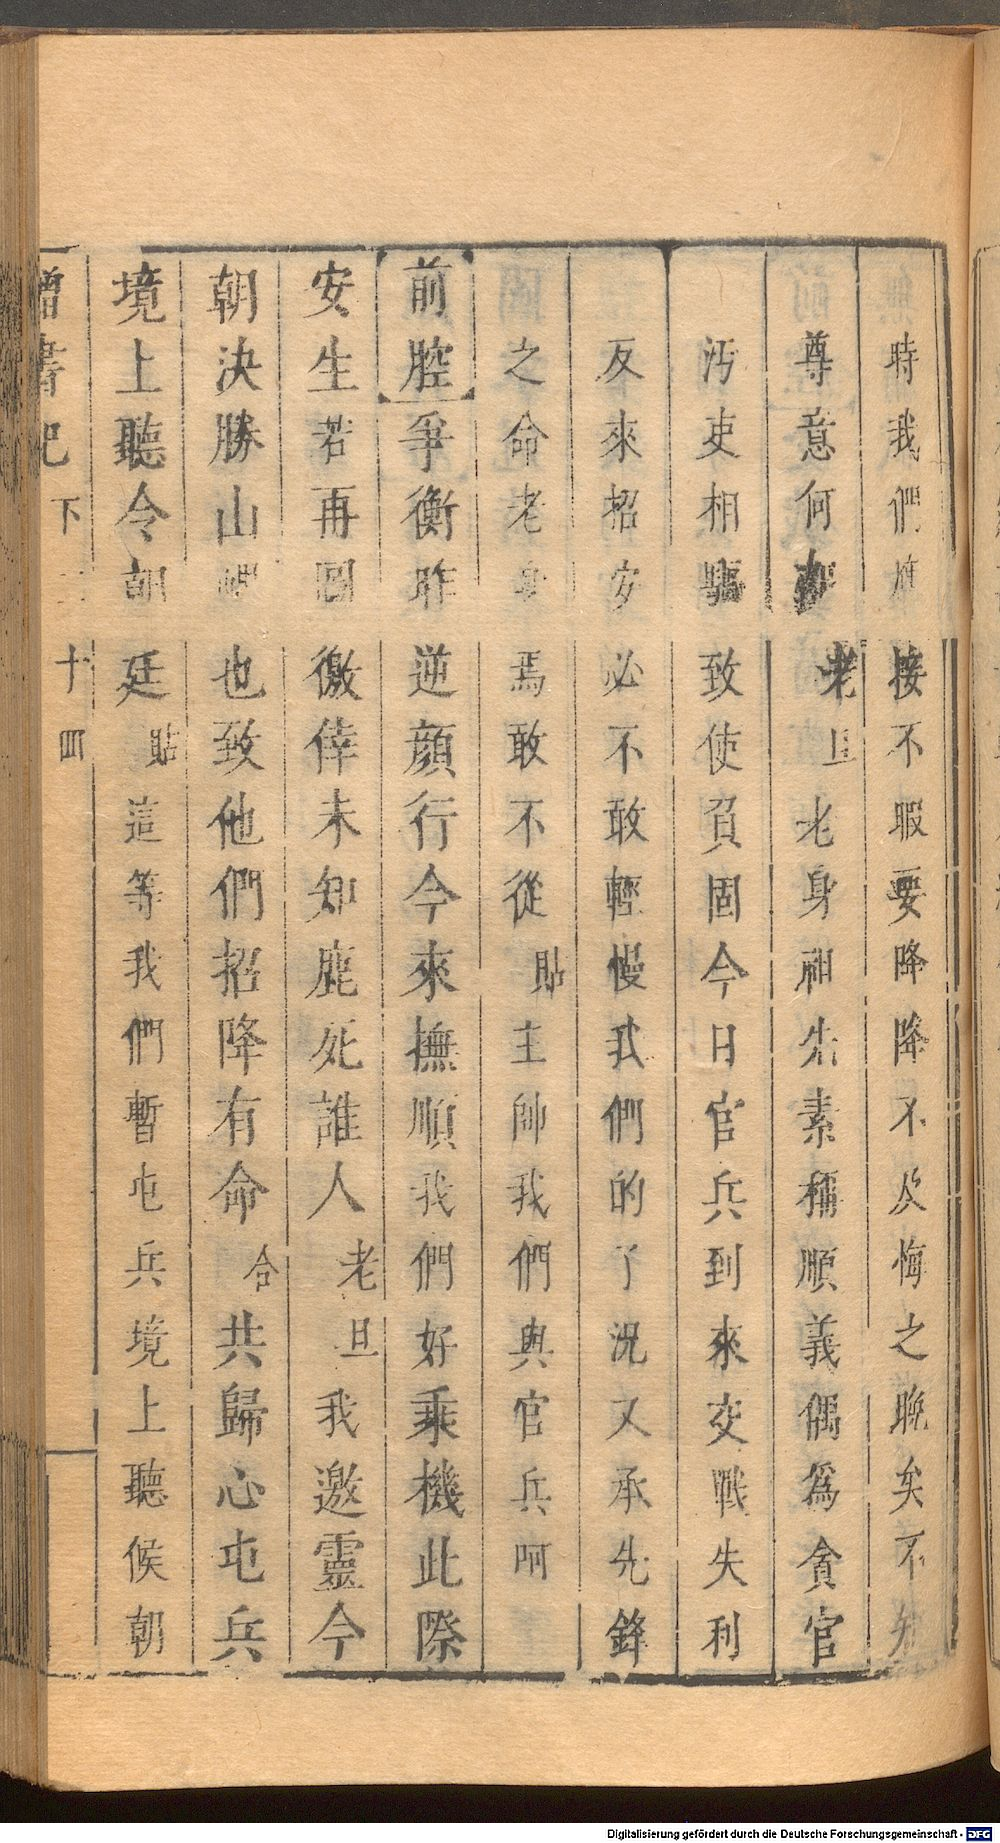 時我們應接不暇要降降不及悔之晚矣不知
尊意何如老旦老身祖先素稱順義偶爲貪官
汚吏相驅致使負固今日官兵到來交戰失利
反來招安必不敢輕慢我們的了況又承先鋒
之命老身焉敢不從貼主帥我們與官兵呵
前腔爭衡昨逆顏行今來撫順我們好乘機此際
安生若再圖徼倖未知鹿死誰人老旦我邀靈今
朝決勝山也致他們招降有命合共歸心屯兵
境上聽令朝廷貼這等我們暫屯兵境上聽候朝
書記 下 十四
Digitalisierung gefördert durch die Deutsche Forschungsgemeinschaft - DFG